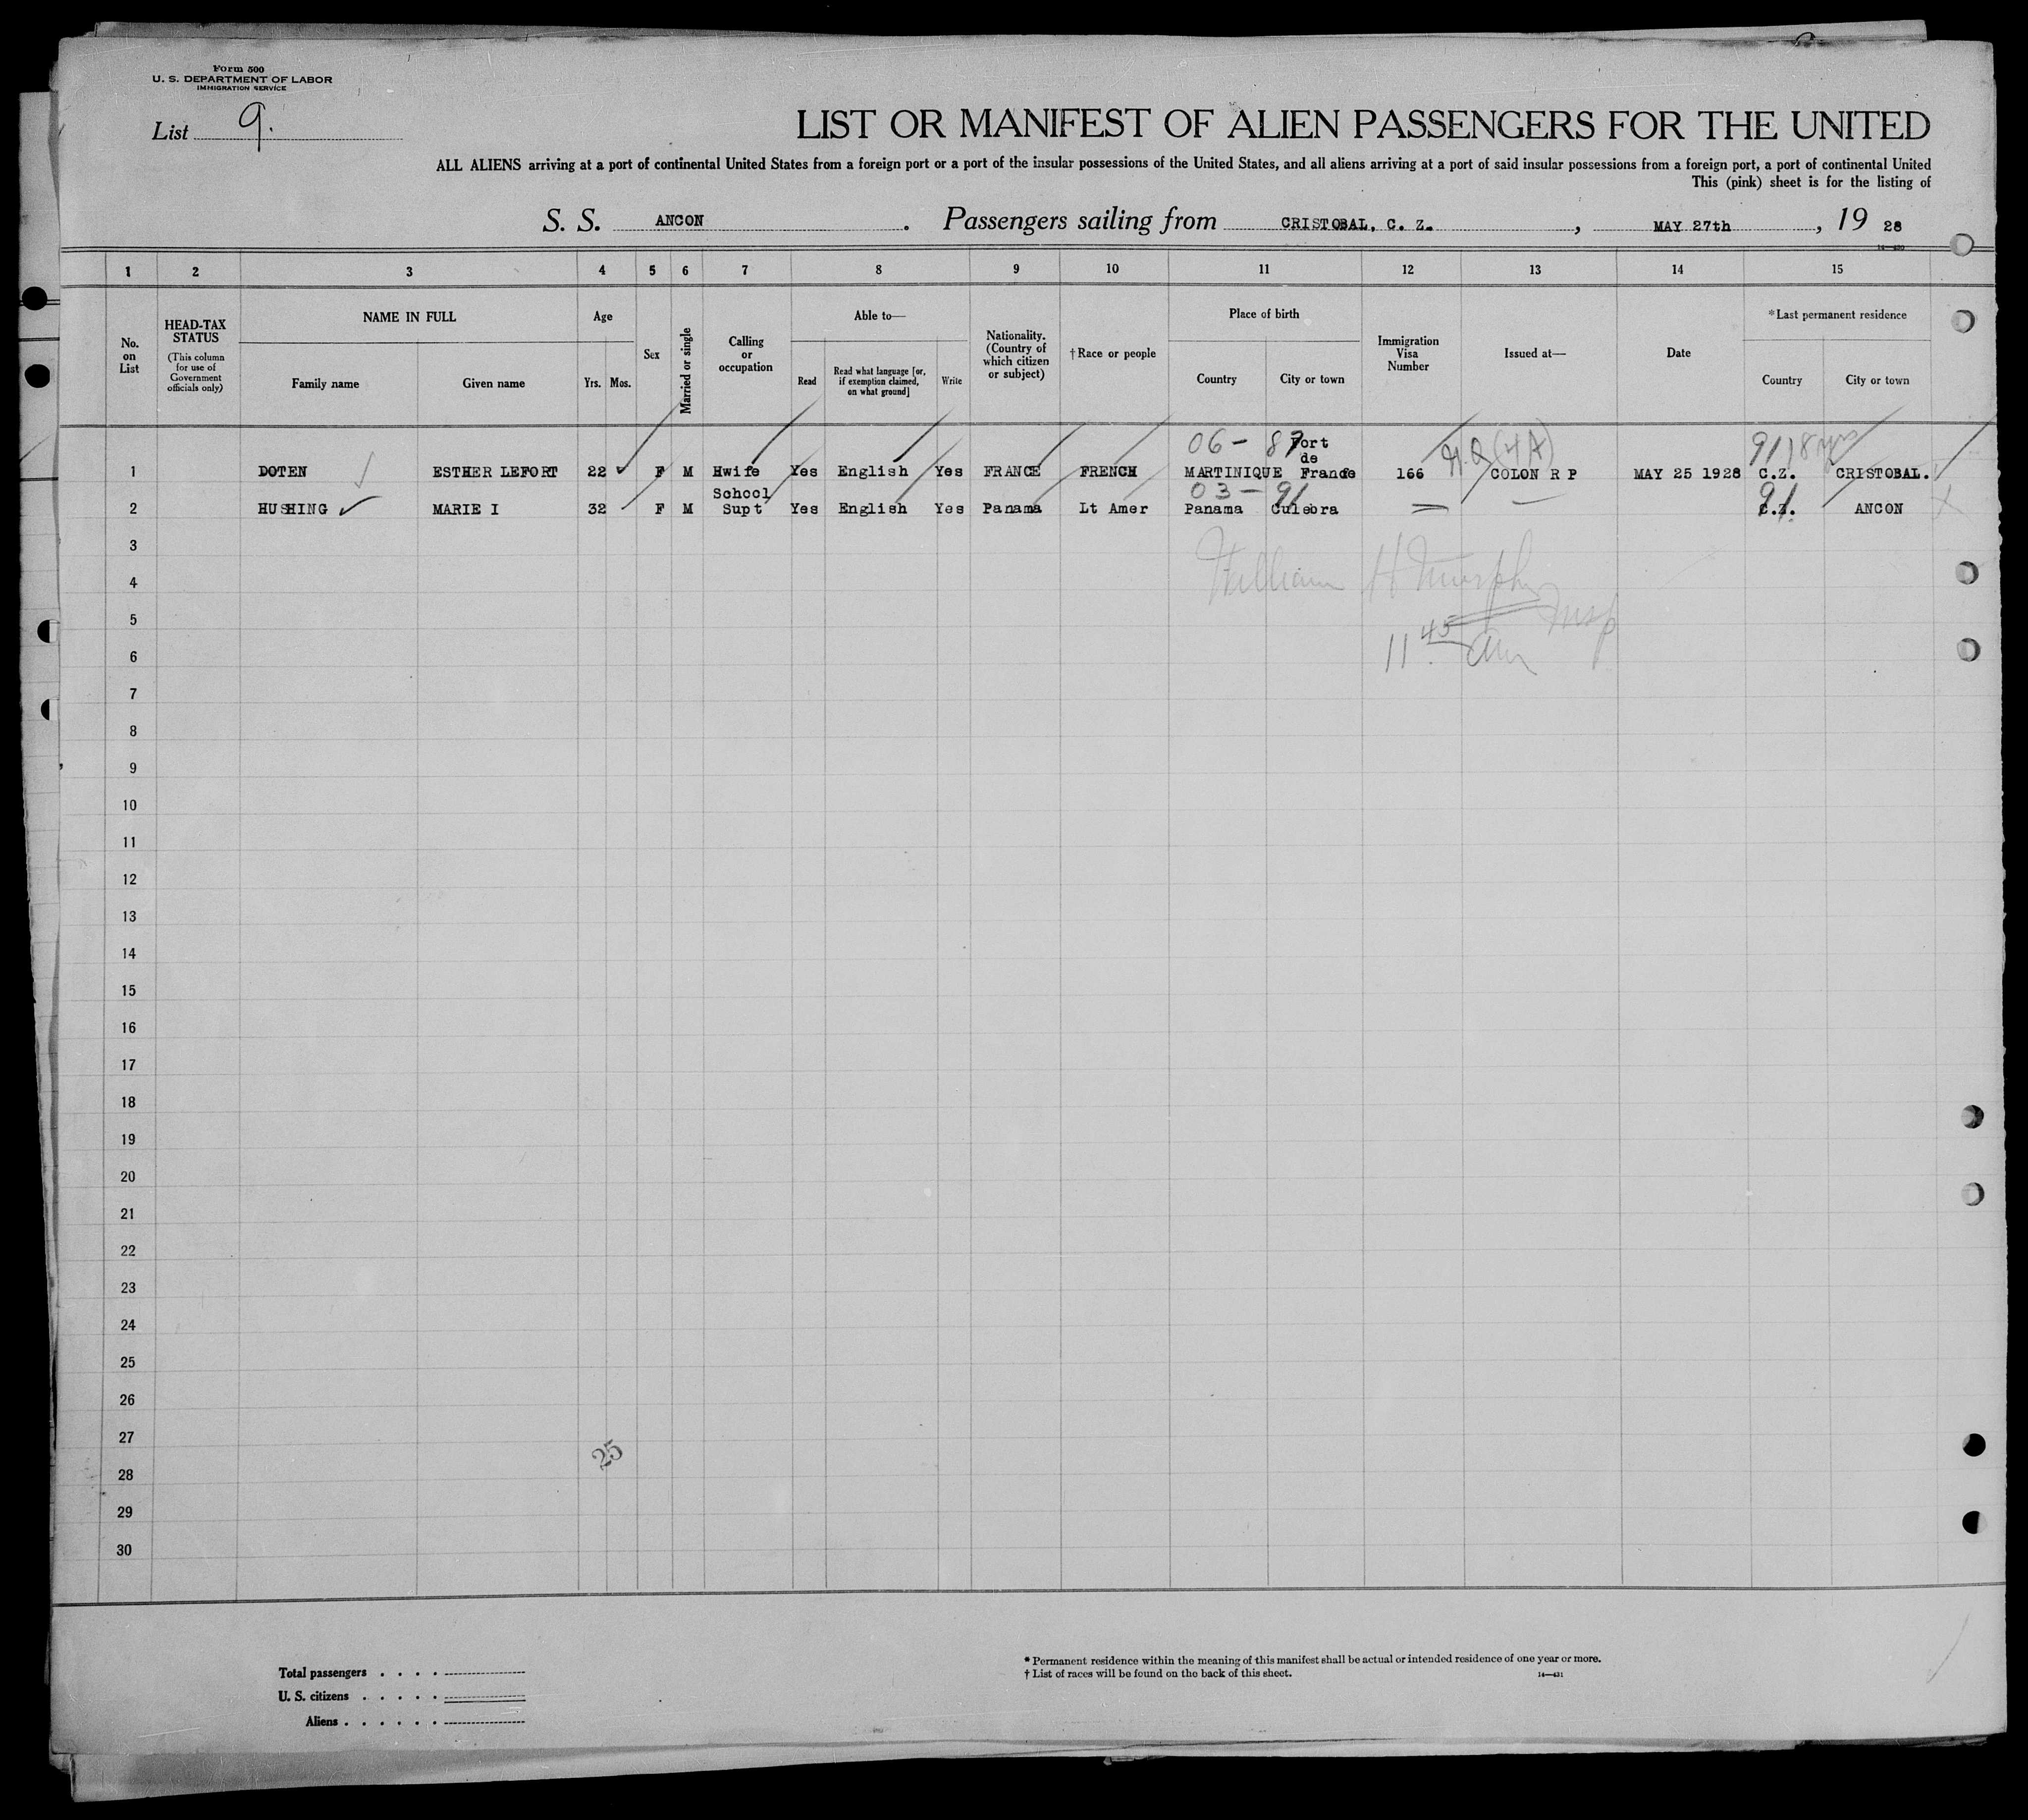 Form 500
U. S. DEPARTMENT OF LABOR
IMMIGRATION SERVICE
List 9.
LIST OR MANIFEST OF ALIEN PASSENGERS FOR THE UNITED
ALL ALIENS arriving at a port of continental United States from a foreign port or a port of the insular possessions of the United States, and all aliens arriving at a port of said insular possessions from a foreign port, a port of continental United
This (pink) sheet is for the listing of
S. S. ANCON. Passengers sailing from CRISTOBAL, C. Z., MAY 27th, 19 28
14—430
1 2 3 4 5 6 7 8 9 10 11 12 13 14 15
No. on List
HEAD-TAX STATUS (This column for use of Government officials only)
NAME IN FULL
Family name Given name
Age
Yrs. Mos.
Sex
Married or single
Calling or occupation
Able to—
Read
Read what language [or, if exemption claimed, on what ground]
Write
Nationality. (Country of which citizen or subject)
†Race or people
Place of birth
Country City or town
Immigration Visa Number
Issued at—
Date
*Last permanent residence
Country City or town
06 - 87 (4A) 91
1 DOTEN ESTHER LEFORT 22 F M Hwife Yes English Yes FRANCE FRENCH MARTINIQUE Fort de France 166 COLON R P MAY 25 1928 C.Z. CRISTOBAL.
03 - 91 91
2 HUSHING MARIE I 32 F M School Supt Yes English Yes Panama Lt Amer Panama Culebra C.Z. ANCON
3
4 William H Murphy
5 Insp
6 11.45 am
7
8
9
10
11
12
13
14
15
16
17
18
19
20
21
22
23
24
25
26
27
25
28
29
30
Total passengers . . . .
U. S. citizens . . . . .
Aliens . . . . . .
* Permanent residence within the meaning of this manifest shall be actual or intended residence of one year or more.
† List of races will be found on the back of this sheet. 14—431